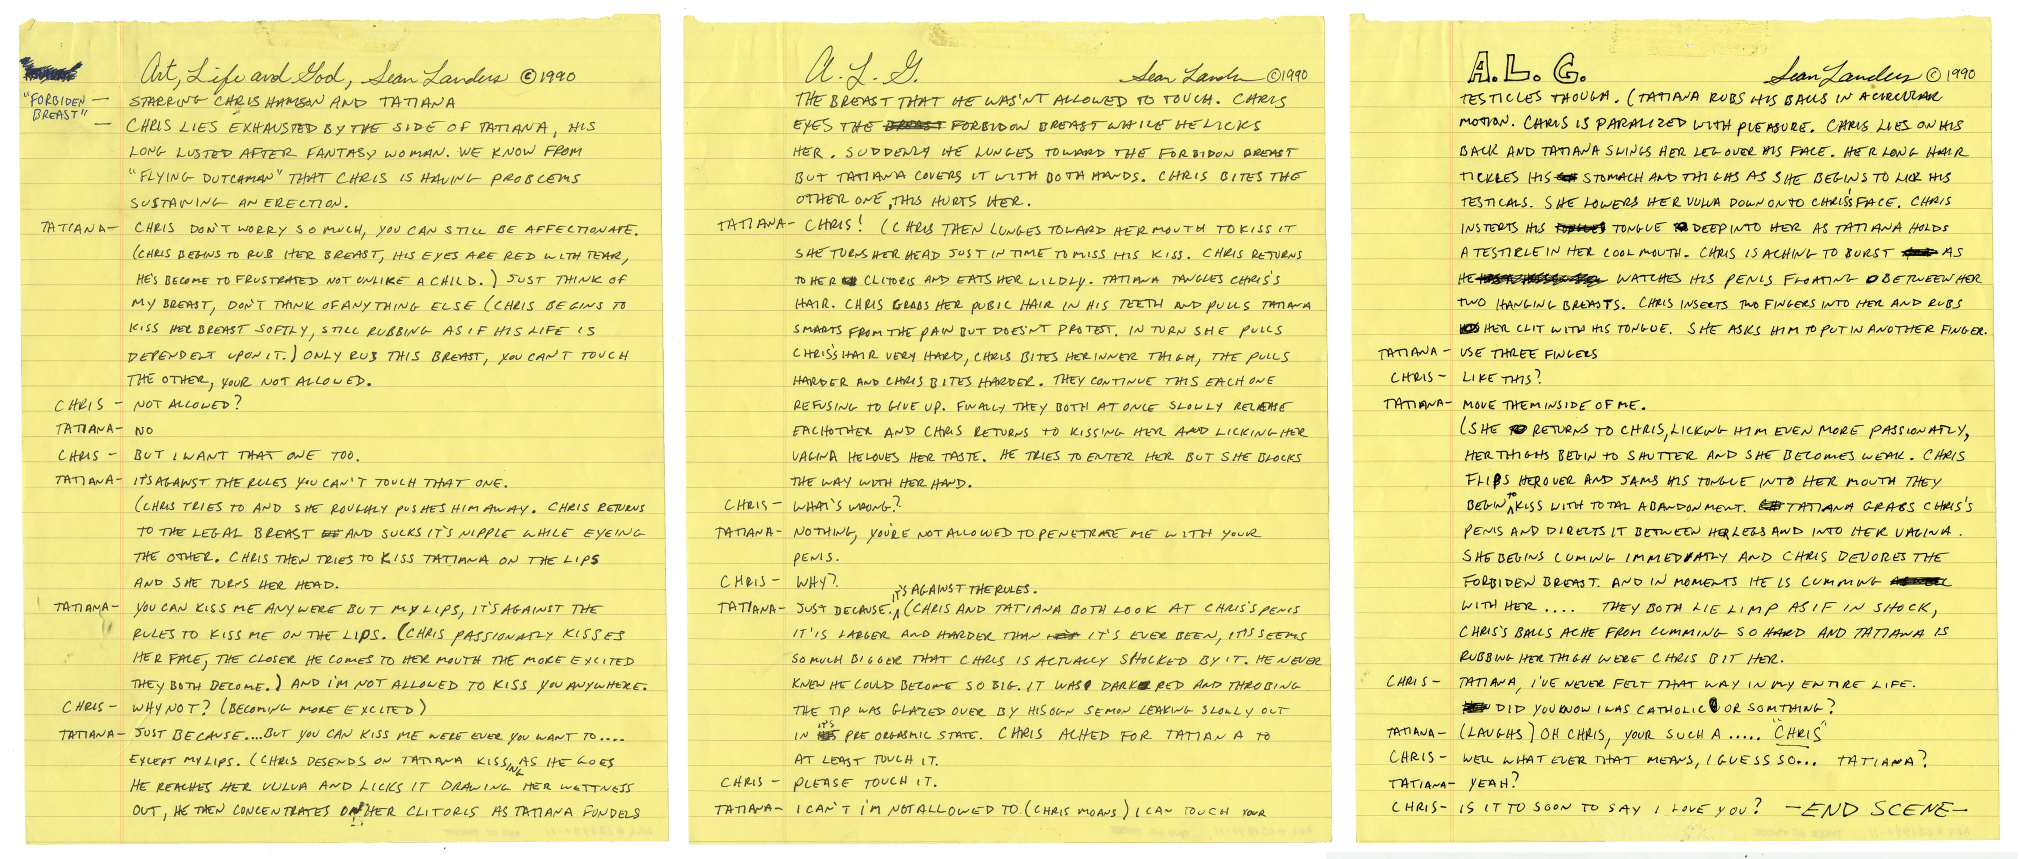 Art, Life and God, Sean Landers © 1990
"FORBIDEN — STARRING CHRIS HAMSON AND TATIANA
BREAST"
— CHRIS LIES EXHAUSTED BY THE SIDE OF TATIANA, HIS
LONG LUSTED AFTER FANTASY WOMAN. WE KNOW FROM
"FLYING DUTCHMAN" THAT CHRIS IS HAVING PROBLEMS
SUSTAINING AN ERECTION.
TATIANA — CHRIS DON'T WORRY SO MUCH, YOU CAN STILL BE AFFECTIONATE.
(CHRIS BEGINS TO RUB HER BREAST, HIS EYES ARE RED WITH TEAR,
HE'S BECOME TO FRUSTRATED NOT UNLIKE A CHILD.) JUST THINK OF
MY BREAST, DON'T THINK OF ANYTHING ELSE (CHRIS BEGINS TO
KISS HER BREAST SOFTLY, STILL RUBBING AS IF HIS LIFE IS
DEPENDELT UPON IT.) ONLY RUB THIS BREAST, YOU CAN'T TOUCH
THE OTHER, YOUR NOT ALLOWED.
CHRIS — NOT ALLOWED?
TATIANA — NO
CHRIS — BUT I WANT THAT ONE TOO.
TATIANA — IT'S AGAINST THE RULES YOU CAN'T TOUCH THAT ONE.
(CHRIS TRIES TO AND SHE ROUGHLY PUSHES HIM AWAY. CHRIS RETURNS
TO THE LEGAL BREAST AND SUCKS IT'S NIPPLE WHILE EYEING
THE OTHER. CHRIS THEN TRIES TO KISS TATIANA ON THE LIPS
AND SHE TURNS HER HEAD.
TATIANA — YOU CAN KISS ME ANYWERE BUT MY LIPS, IT'S AGAINST THE
RULES TO KISS ME ON THE LIPS. (CHRIS PASSIONATLY KISSES
HER FACE, THE CLOSER HE COMES TO HER MOUTH THE MORE EXCITED
THEY BOTH BECOME.) AND I'M NOT ALLOWED TO KISS YOU ANYWHERE.
CHRIS — WHY NOT? (BECOMING MORE EXCITED)
TATIANA — JUST BECAUSE....BUT YOU CAN KISS ME WERE EVER YOU WANT TO....
EXCEPT MY LIPS. (CHRIS DESENDS ON TATIANA KISSING, AS HE GOES
HE REACHES HER VULVA AND LICKS IT DRAWING HER WETTNESS
OUT, HE THEN CONCENTRATES ON HER CLITORIS AS TATIANA FONDELS
A. L. G. Sean Landers © 1990
THE BREAST THAT HE WAS'NT ALLOWED TO TOUCH. CHRIS
EYES THE FORBIDON BREAST WHILE HE LICKS
HER. SUDDENLY HE LUNGES TOWARD THE FORBIDON BREAST
BUT TATIANA COVERS IT WITH BOTH HANDS. CHRIS BITES THE
OTHER ONE, THIS HURTS HER.
TATIANA — CHRIS! (CHRIS THEN LUNGES TOWARD HER MOUTH TO KISS IT
SHE TURNS HER HEAD JUST IN TIME TO MISS HIS KISS. CHRIS RETURNS
TO HER CLITORIS AND EATS HER WILDLY. TATIANA TANGLES CHRIS'S
HAIR. CHRIS GRABS HER PUBIC HAIR IN HIS TEETH AND PULLS TATIANA
SMARTS FROM THE PAIN BUT DOESN'T PROTEST. IN TURN SHE PULLS
CHRIS'S HAIR VERY HARD, CHRIS BITES HER INNER THIGH, THE PULLS
HARDER AND CHRIS BITES HARDER. THEY CONTINUE THIS EACH ONE
REFUSING TO GIVE UP. FINALLY THEY BOTH AT ONCE SLOWLY RELEASE
EACHOTHER AND CHRIS RETURNS TO KISSING HER AND LICKING HER
VAGINA HE LOVES HER TASTE. HE TRIES TO ENTER HER BUT SHE BLOCKS
THE WAY WITH HER HAND.
CHRIS — WHAT'S WRONG?
TATIANA — NOTHING, YOU'RE NOT ALLOWED TO PENETRATE ME WITH YOUR
PENIS.
CHRIS — WHY?
TATIANA — JUST BECAUSE. IT'S AGAINST THE RULES. (CHRIS AND TATIANA BOTH LOOK AT CHRIS'S PENIS
IT IS LARGER AND HARDER THAN IT'S EVER BEEN, IT'S SEEMS
SO MUCH BIGGER THAT CHRIS IS ACTUALLY SHOCKED BY IT. HE NEVER
KNEW HE COULD BECOME SO BIG. IT WAS DARK RED AND THROBING
THE TIP WAS GLAZED OVER BY HIS OGN SEMON LEAKING SLOWLY OUT
IN IT'S PRE ORGASMIC STATE. CHRIS ACHED FOR TATIANA TO
AT LEAST TOUCH IT.
CHRIS — PLEASE TOUCH IT.
TATIANA — I CAN'T I'M NOT ALLOWED TO (CHRIS MOANS) I CAN TOUCH YOUR
A. L. G. Sean Landers © 1990
TESTICLES THOUGH. (TATIANA RUBS HIS BALLS IN A CIRCULAR
MOTION. CHRIS IS PARALIZED WITH PLEASURE. CHRIS LIES ON HIS
BACK AND TATIANA SLINGS HER LEG OVER HIS FACE. HER LONG HAIR
TICKLES HIS STOMACH AND THIGHS AS SHE BEGINS TO LICK HIS
TESTICALS. SHE LOWERS HER VULVA DOWN ONTO CHRIS'S FACE. CHRIS
INSTERTS HIS TONGUE DEEP INTO HER AS TATIANA HOLDS
A TESTICLE IN HER COOL MOUTH. CHRIS IS ACHING TO BURST AS
HE WATCHES HIS PENIS FLOATING BETWEEN HER
TWO HANGING BREASTS. CHRIS INSERTS TWO FINGERS INTO HER AND RUBS
HER CLIT WITH HIS TONGUE. SHE ASKS HIM TO PUT IN ANOTHER FINGER.
TATIANA — USE THREE FINGERS
CHRIS — LIKE THIS?
TATIANA — MOVE THEM INSIDE OF ME.
(SHE RETURNS TO CHRIS, LICKING HIM EVEN MORE PASSIONATLY,
HER THIGHS BEGIN TO SHUTTER AND SHE BECOMES WEAK. CHRIS
FLIPS HER OVER AND JAMS HIS TONGUE INTO HER MOUTH THEY
BEGIN TO KISS WITH TOTAL ABANDONMENT. TATIANA GRABS CHRIS'S
PENIS AND DIRECTS IT BETWEEN HER LEGS AND INTO HER VAGINA.
SHE BEGINS CUMING IMMEDIATLY AND CHRIS DEVORES THE
FORBIDEN BREAST. AND IN MOMENTS HE IS CUMMING
WITH HER .... THEY BOTH LIE LIMP AS IF IN SHOCK,
CHRIS'S BALLS ACHE FROM CUMMING SO HARD AND TATIANA IS
RUBBING HER THIGH WERE CHRIS BIT HER.
CHRIS — TATIANA, I'VE NEVER FELT THAT WAY IN MY ENTIRE LIFE.
DID YOU KNOW I WAS CATHOLIC OR SOMTHING?
TATIANA — (LAUGHS) OH CHRIS, YOUR SUCH A ..... "CHRIS"
CHRIS — WELL WHAT EVER THAT MEANS, I GUESS SO... TATIANA?
TATIANA — YEAH?
CHRIS — IS IT TO SOON TO SAY I LOVE YOU? —END SCENE—